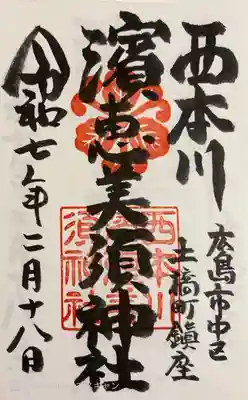 西本川
広島市中区
土橋町鎮座
濱恵美須神社
令和七年二月十八日
西本川
須神社